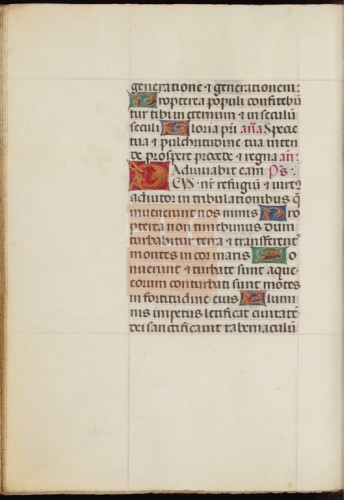 generatione ⁊ generationem:
Propterea populi confitebũ
tur tibi in eternum ⁊ in seculũ
seculi Gloria pr̃i añа Specie
tua ⁊ pulchritudine tua inten
de prospere procede ⁊ regna añ:
Adiuvabit eam p̃s:
DEUS nr̃ refugiũ ⁊ virt9
adiutor in tribulationibus q̃
invenerunt nos nimis Pro
pterea non timebimus dum
turbabitur terra ⁊ transferent
montes in cor maris So
nuerunt ⁊ turbate sunt aque
eorum conturbati sunt mõtes
in fortitudine eius Flumi
nis impetus letificat civitatẽ
dei sanctificavit tabernaculũ